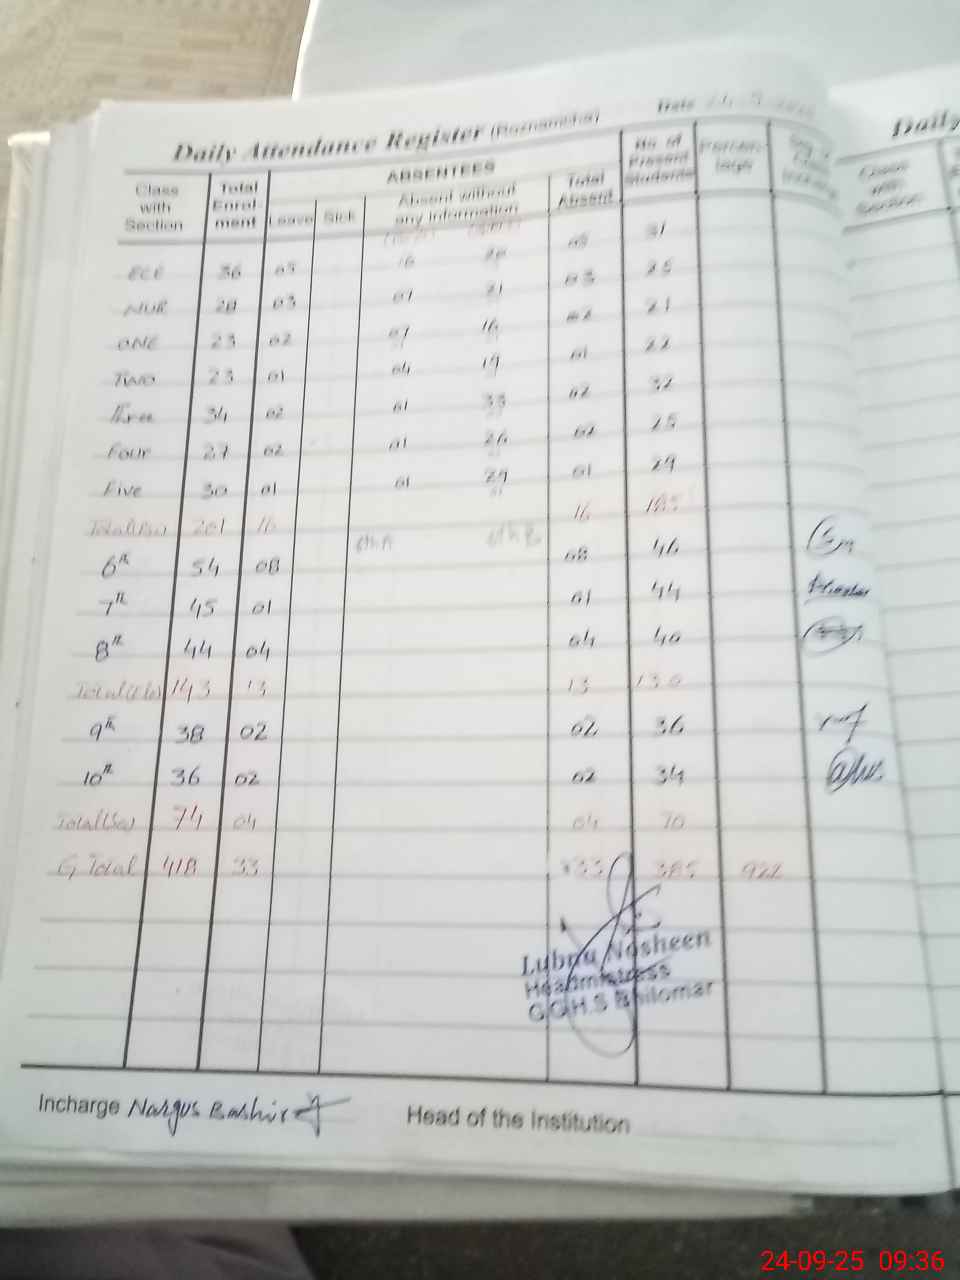 Daily Attendance Register (Roznamcha) Date
Daily
Class with Section Total Enrol-ment ABSENTEES Total Absent No. of Present Students Percen-tage
Leave Sick Absent without any information
ECE 36 05 16 20 05 31
NUR 28 03 07 21 03 25
ONE 23 02 07 16 02 21
Two 23 01 04 19 01 22
Three 34 02 01 33 02 32
Four 27 02 01 26 02 25
Five 30 01 01 29 01 29
Total 201 16 16 185
6th 54 08 6th A 6th B 08 46
7th 45 01 01 44
8th 44 04 04 40
Total 143 13 13 130
9th 38 02 02 36
10th 36 02 02 34
Total 74 04 04 70
G Total 418 33 33 385
Lubna Nosheen
Headmistress
G.G.H.S Bhilomar
Incharge Nargus Bashir Head of the Institution
24-09-25 09:36